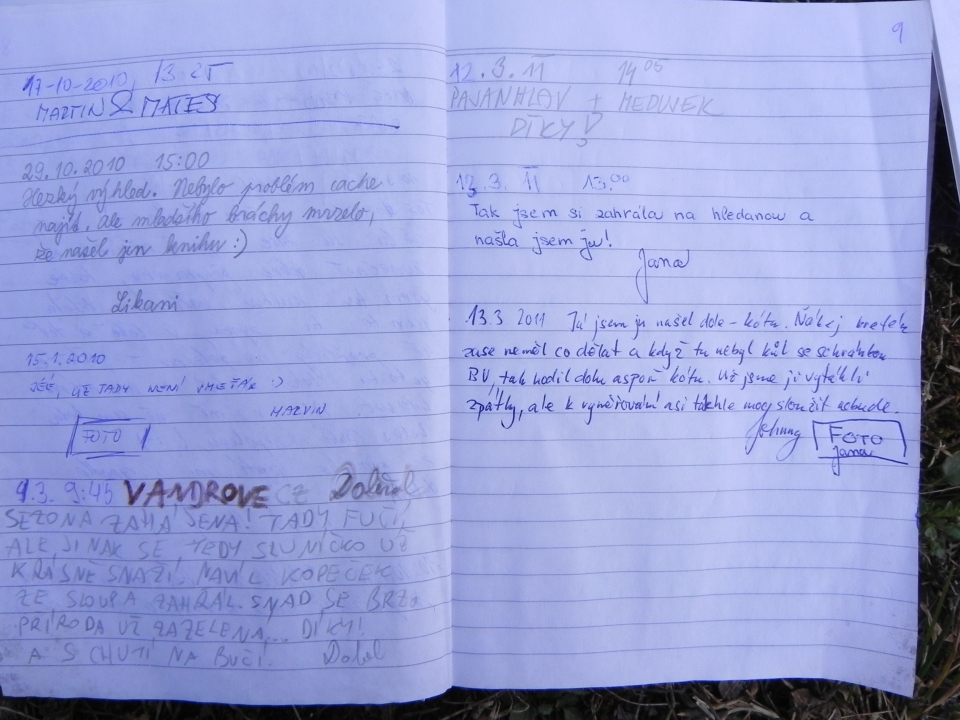 17-10-2010, 13:25
MARTIN & MATES
29.10.2010 15:00
Hezký výhled. Nebylo problém cache
najít, ale mladšího bráchy mrzelo,
že našel jen knihu :)
Likani
15.1.2010
JÉÉ, UŽ TADY NENÍ :)
FOTO
9.3. 9:45 VANDROVE CZ
SEZONA ZAHÁJENA! TADY FUČÍ,
ALE JINAK SE TEDY SLUNÍČKO UŽ
KRÁSNĚ SNAŽÍ. NAVÍC KOPEČEK
ZE SLOUPA ZAHŘÁL. SNAD SE BRZO
PŘÍRODA UŽ ZAZELENÁ... DÍKY!
A S CHUTÍ NA BUČÍ!
9
12.3.11 14 05
PAJANHLAV + MEDINEK
DÍKY!
12.3. 11 13.00
Tak jsem si zahrála na hledanou a
našla jsem ju!
Jana
13.3 2011 Já jsem ju našel dole - kótu. Nákej
zase neměl co dělat a když tu nebyl kůl se schránkou
BV, tak hodil dolu aspoň kótu. Už jsme ji vytáhli
zpátky, ale k vyměřování asi takhle moc sloužit nebude.
Johnny FOTO
Jana